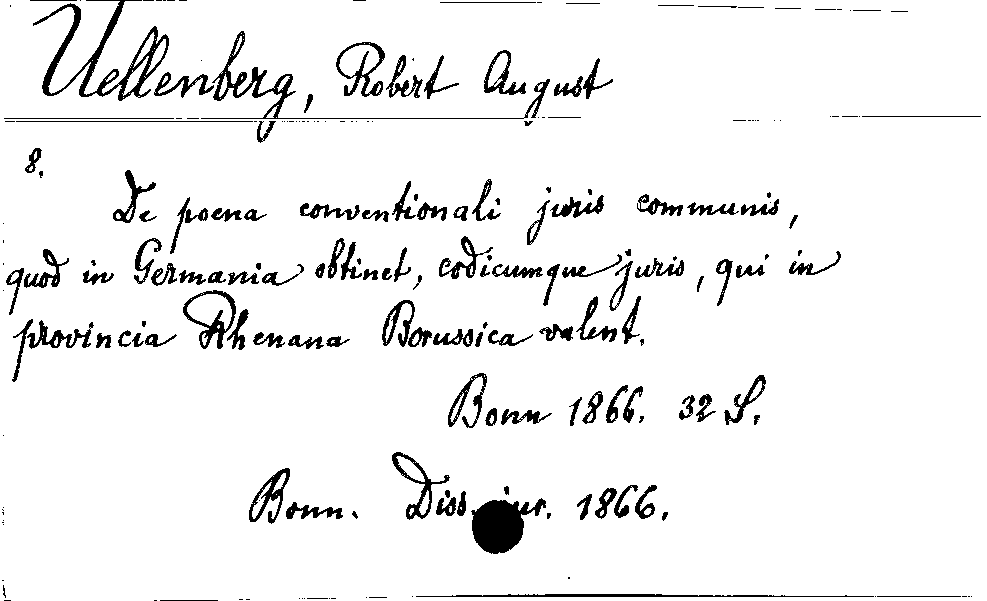 Uellenberg, Robert August
8.
De poena conventionali juris communis,
quod in Germania obtinet, codicumque juris, qui in
provincia Rhenana Borussica valent.
Bonn 1866. 32 S.
Bonn. Diss. jur. 1866.